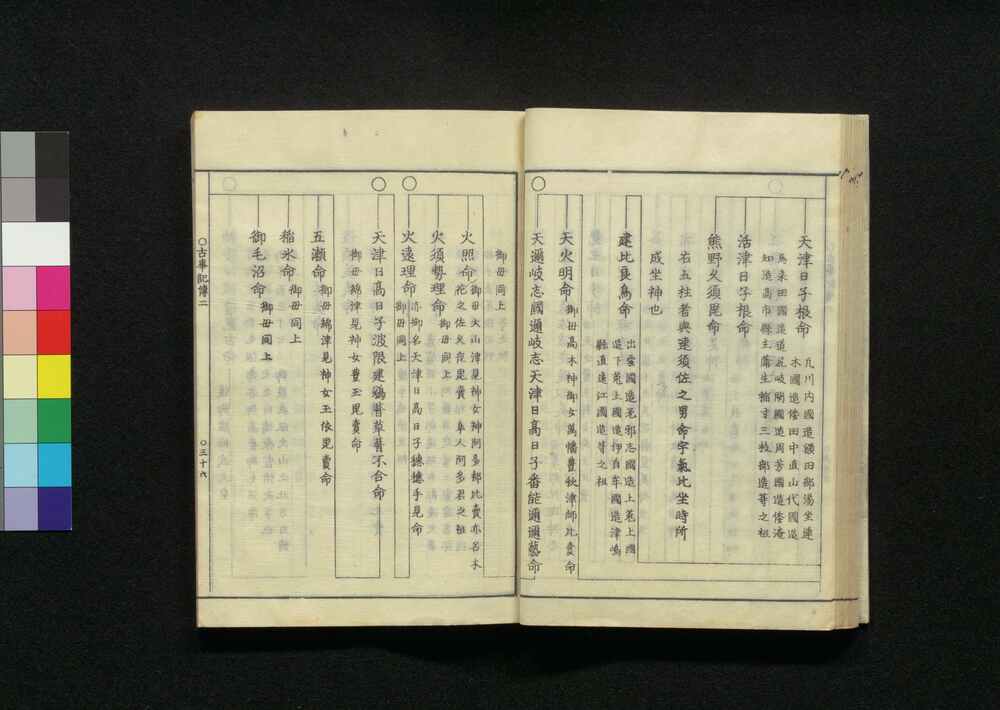 天津日子根命
凡川内國造額田部湯坐連
木國造倭田中直山代國造
馬來田國造道尻岐閇國造周芳國造倭淹
知造高市縣主蒲生稲寸三枝部造等之祖
活津日子根命
熊野久須毘命
右五柱者與速須佐之男命宇氣比坐時所
成坐神也
建比良鳥命
出雲國造无邪志國造上菟上國
造下菟上國造伊自牟國造津嶋
縣直遠江國造等之祖
天火明命
御母高木神御女萬幡豊秋津師比賣命
天邇岐志國邇岐志天津日高日子番能邇邇藝命
御母同上
火照命
御母大山津見神女神阿多都比賣亦名木
花之佐久夜毘賣
隼人阿多君之祖
火須勢理命
御母同上
火遠理命
亦御名天津日高日子穂穂手見命
御母同上
天津日高日子波限建鵜葺草葺不合命
御母綿津見神女豊玉毘賣命
五瀬命
御母綿津見神女玉依毘賣命
稲氷命
御母同上
御毛沼命
御母同上
○古事記傳二
○三十六